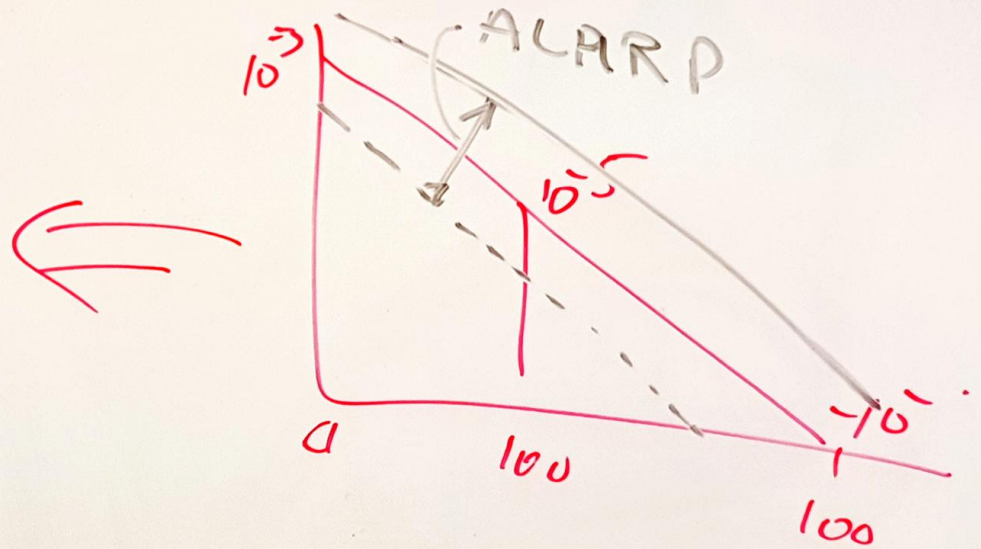 ALARP
10⁻³
10⁻⁵
100
100